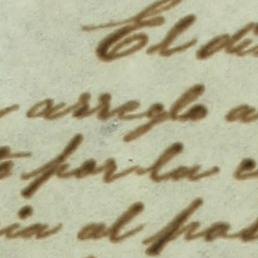 El di
arreglo a
por la c
ia al pos